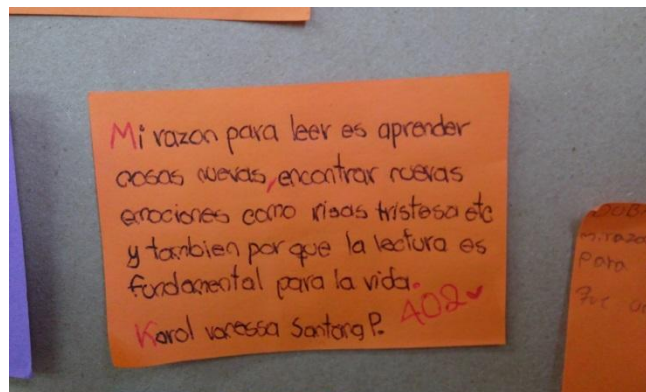 Mi razon para leer es aprender
cosas nuevas, encontrar nuevas
emociones como risas tristesa etc
y tambien por que la lectura es
fundamental para la vida.
Karol vanessa Santana P. 402
Mi razo
para